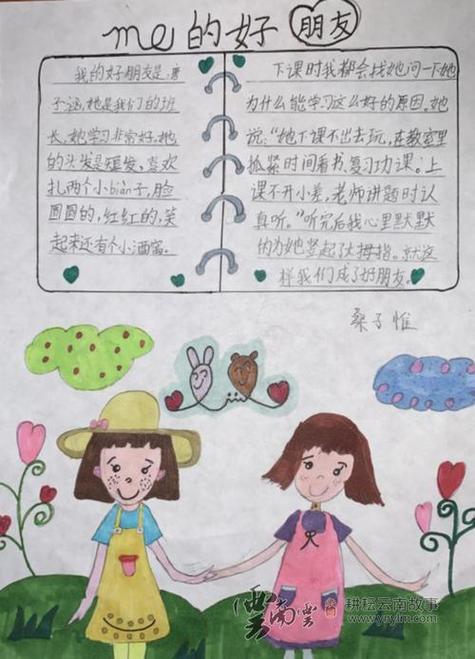 me的好朋友
我的好朋友是唐
子涵,她是我们的班
长,她学习非常好,她
的头发是短发,喜欢
扎两个小biàn子,脸
圆圆的,红红的,笑
起来还有个小酒窝。
下课时我都会找她问一下她
为什么能学习这么好的原因。她
说:“她下课不出去玩,在教室里
抓紧时间看书、复习功课。上
课不开小差,老师讲题时认
真听。”听完后我心里默默
的为她竖起了大拇指。就这
样我们成了好朋友。
桑子惟
云南云
耕耘云南故事
www.ynylm.com